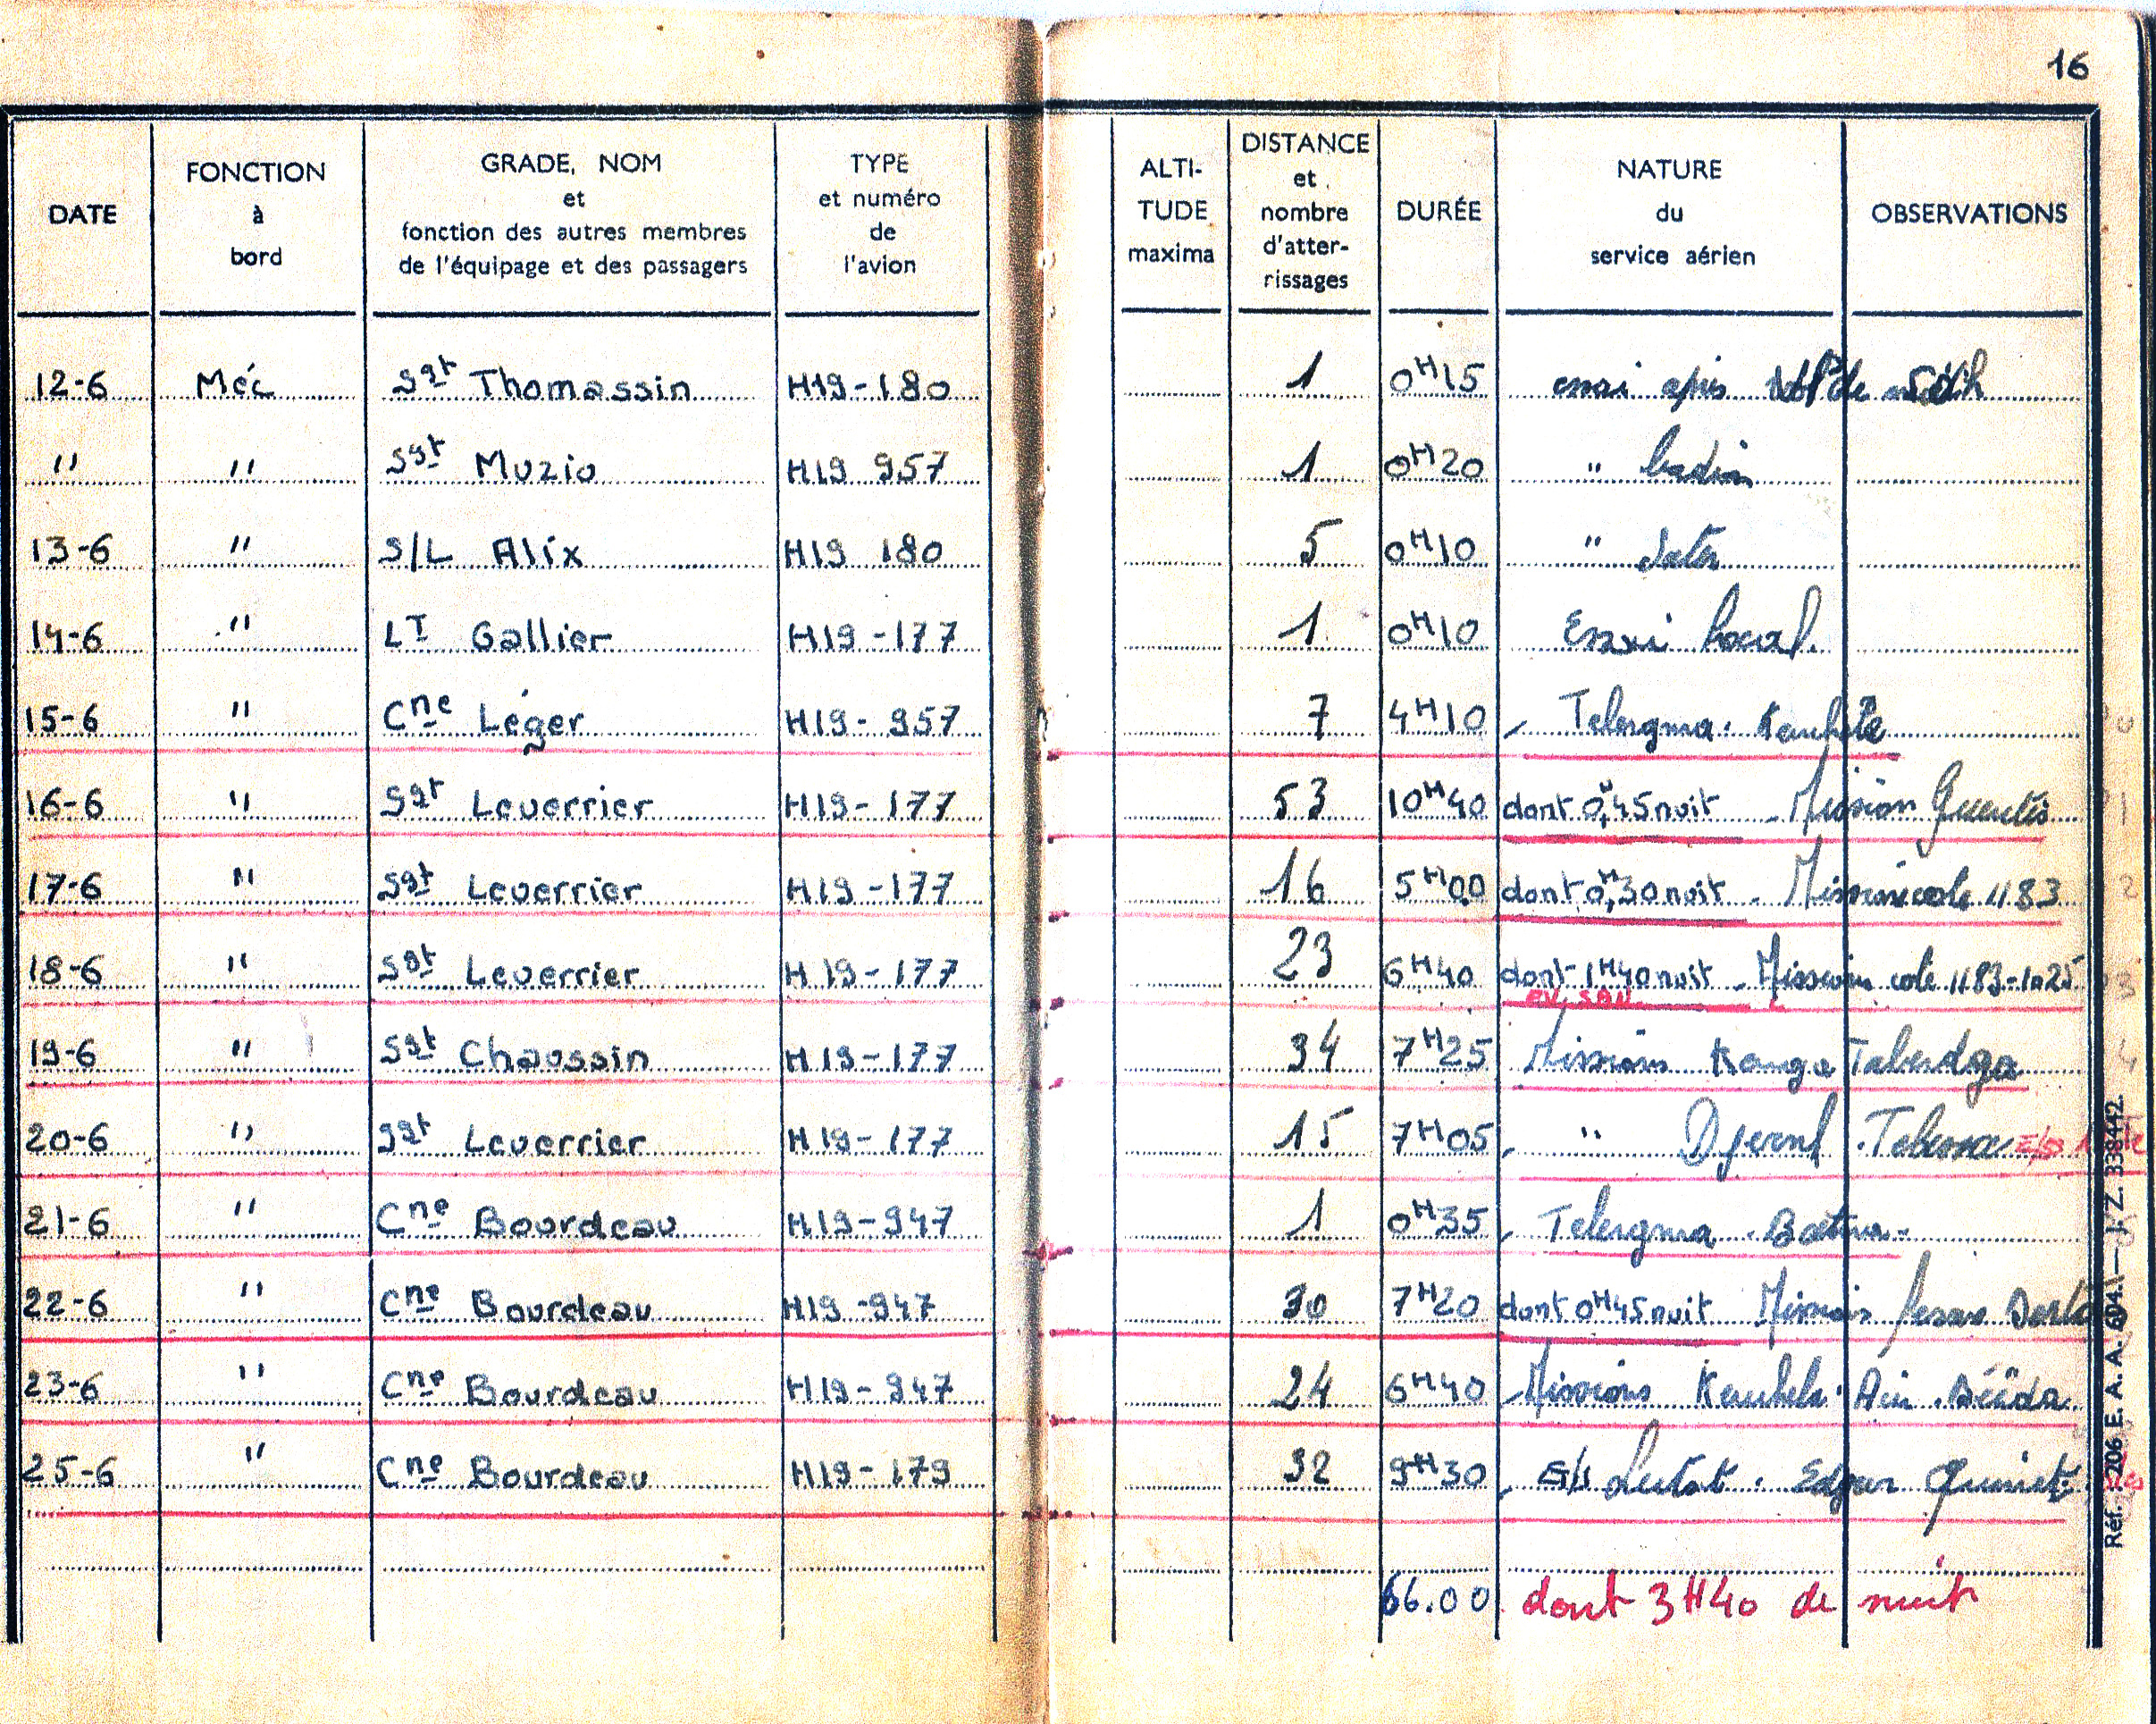 16
DATE
FONCTION
à
bord
GRADE, NOM
et
fonction des autres membres
de l'équipage et des passagers
TYPE
et numéro
de
l'avion
ALTI-
TUDE
maxima
DISTANCE
et
nombre
d'atter-
rissages
DURÉE
NATURE
du
service aérien
OBSERVATIONS
12-6 Méc Sgt Thomassin H19-180 1 0H15 essai après de
" " Sgt Muzio H19 957 1 0H20 " badin
13-6 " S/L Alix H19 180 5 0H10 "
14-6 " LT Gallier H19-177 1 0H10 Essai local.
15-6 " Cne Léger H19-957 7 4H10 Telergma.
16-6 " Sgt Leverrier H19-177 53 10H40 dont 0H45 nuit - Mission Guentis
17-6 " Sgt Leverrier H19-177 16 5H00 dont 0H30 nuit - Mission cote 1183
18-6 " Sgt Leverrier H19-177 23 6H40 dont 1H40 nuit - Missions cote 1183-1025
EV. SAN.
19-6 " Sgt Chaussin H19-177 34 7H25 Missions Kanga Taberdga
20-6 " Sgt Leverrier H19-177 15 7H05 " Djeurf. Tebessa E/S
21-6 " Cne Bourdeau H19-947 1 0H35 Telergma. Batna-
22-6 " Cne Bourdeau H19-947 30 7H20 dont 0H45 nuit Missions
23-6 " Cne Bourdeau H19-947 24 6H40 Missions Kenchela. Ain. Béïda
25-6 " Cne Bourdeau H19-179 32 9H30 Edgar Quinet
66.00 dont 3H40 de nuit
Réf. F 206 E. A. A. 604.1 — J. Z. 338442